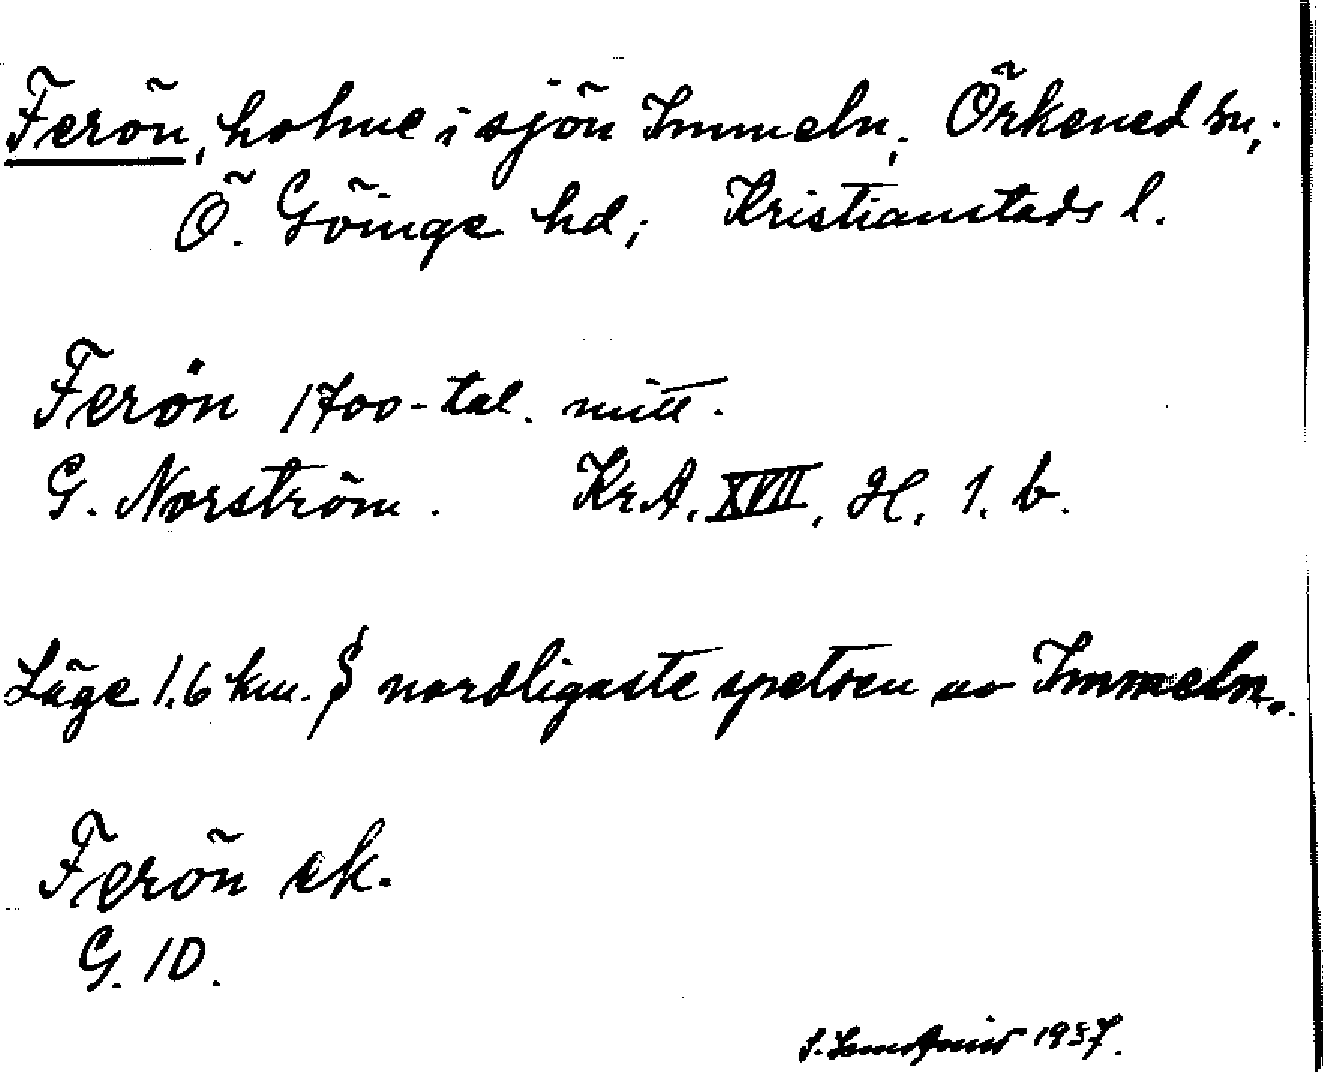 Ferön, holme i sjön Immeln, Örkened sn,
Ö. Göinge hd; Kristianstads l.
Ferön 1700-tal. mitt.
G. Norström. Kr.A. XVII, H, 1. b.
Läge 1.6 km. S nordligaste spetsen av Immeln.
Ferön ek.
G. 10.
1937.